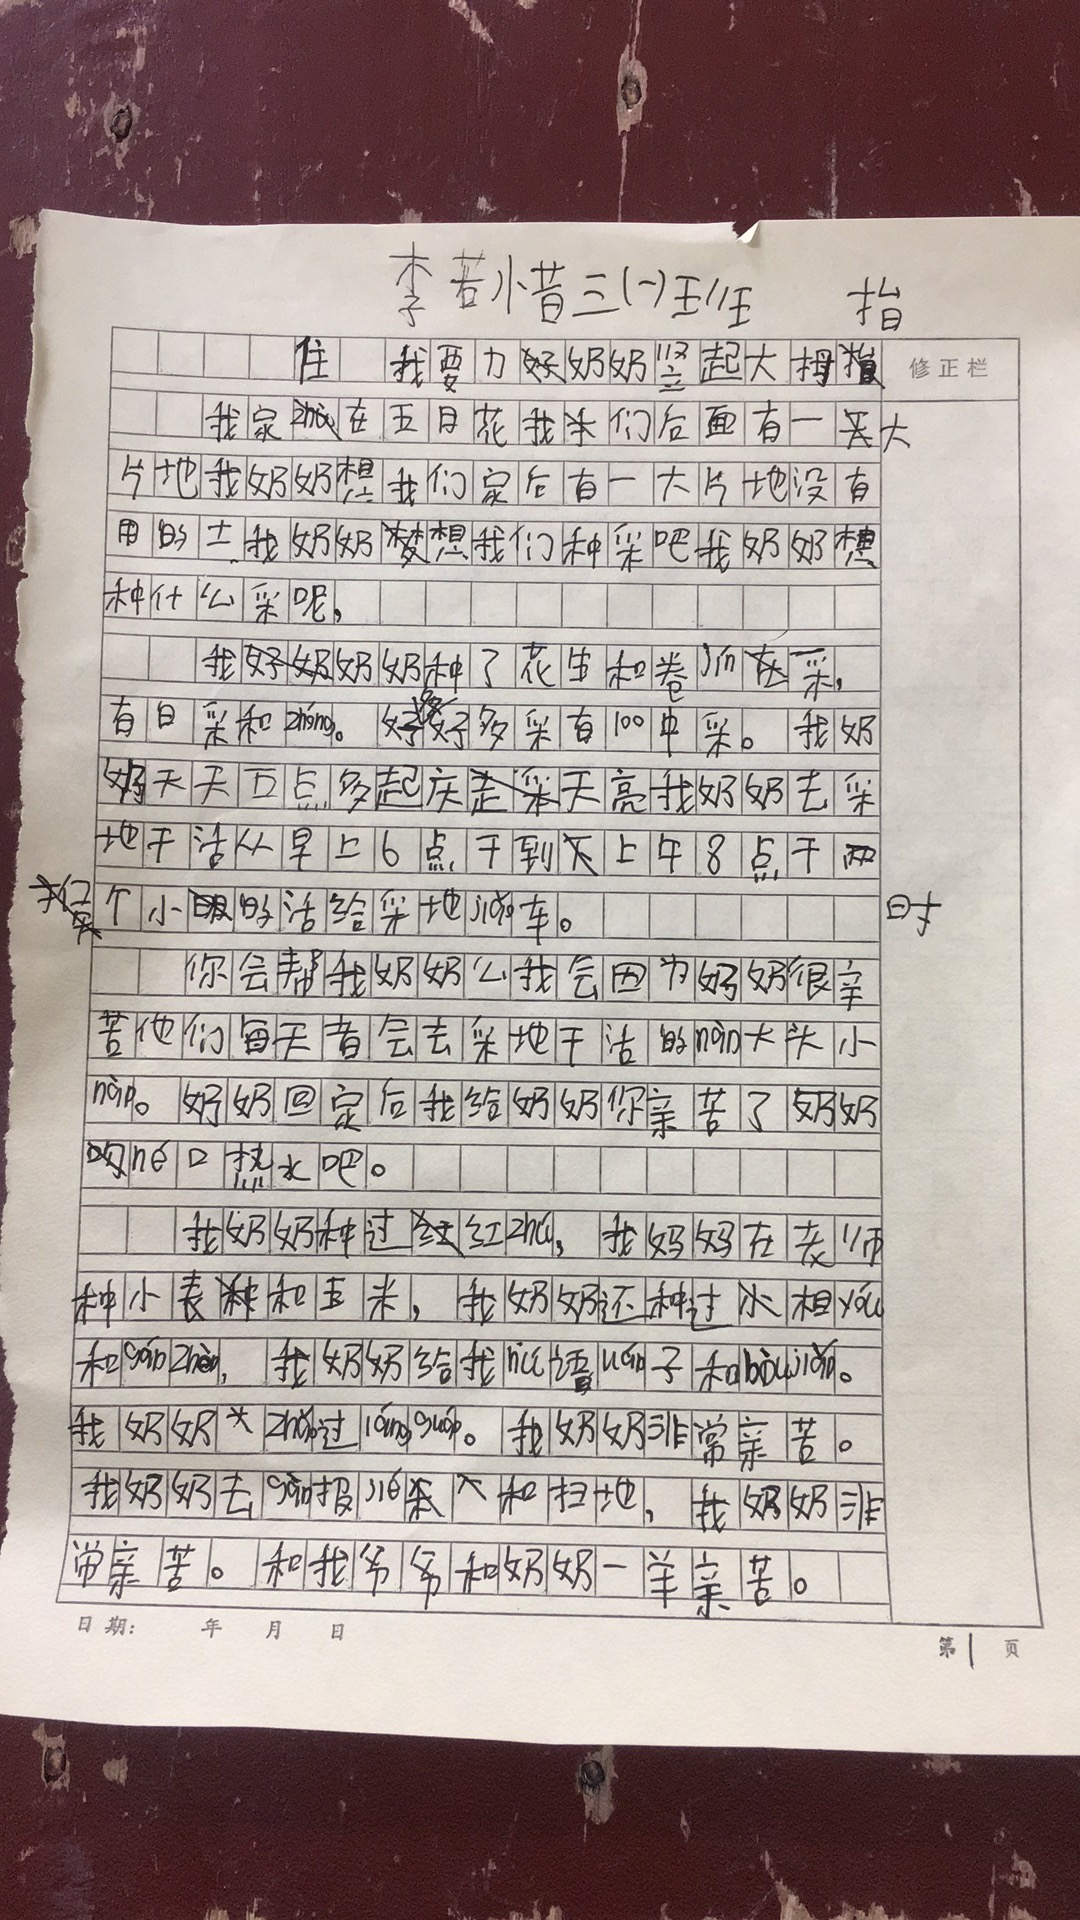 李若惜三(一)班 指
住 我要力奶奶竖起大拇
修正栏
我家在五月花我们后面有一大
片地我奶奶想我们家后有一大片地没有
用的土我奶奶想我们种采吧我奶奶想
种什么采呢,
我奶奶种了花生和卷采,
有白采和zhóng。好多采有100中采。我奶
奶天天五点多起庆天亮我奶奶去采
地干活从早上6点干到上午8点干两
个小的活给采地jiāo车。
时
你会帮我奶奶么我会因为奶奶很辛
苦他们每天者会去采地干活的nàn大头小
nàn。奶奶回家后我给奶奶你亲苦了奶奶
hé口热水吧。
我奶奶种过红zhú,我妈妈在老师
种小麦和玉米,我奶奶还种过相yóu
和gān zhè,我奶奶给我子和
我奶奶过。我奶奶非常亲苦。
我奶奶去和扫地,我奶奶非
常亲苦。和我爷爷和奶奶一羊亲苦。
日期: 年 月 日
第1页